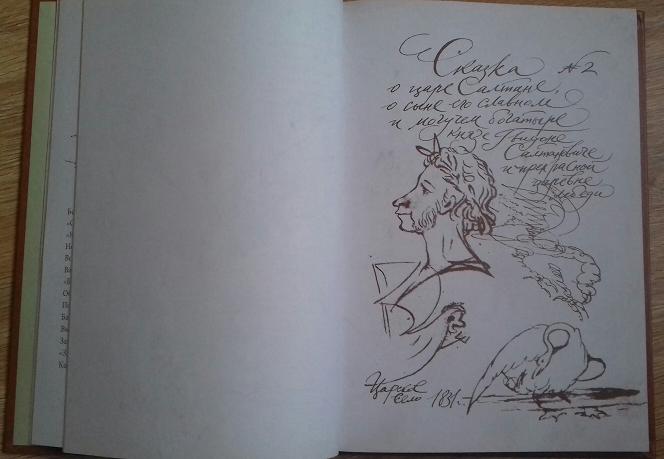 Сказка №2
о царе Салтане,
о сыне его славном
и могучем богатыре
князе Гвидоне
Салтановиче
и прекрасной
царевне
Лебеди
Царское
Село 1831.